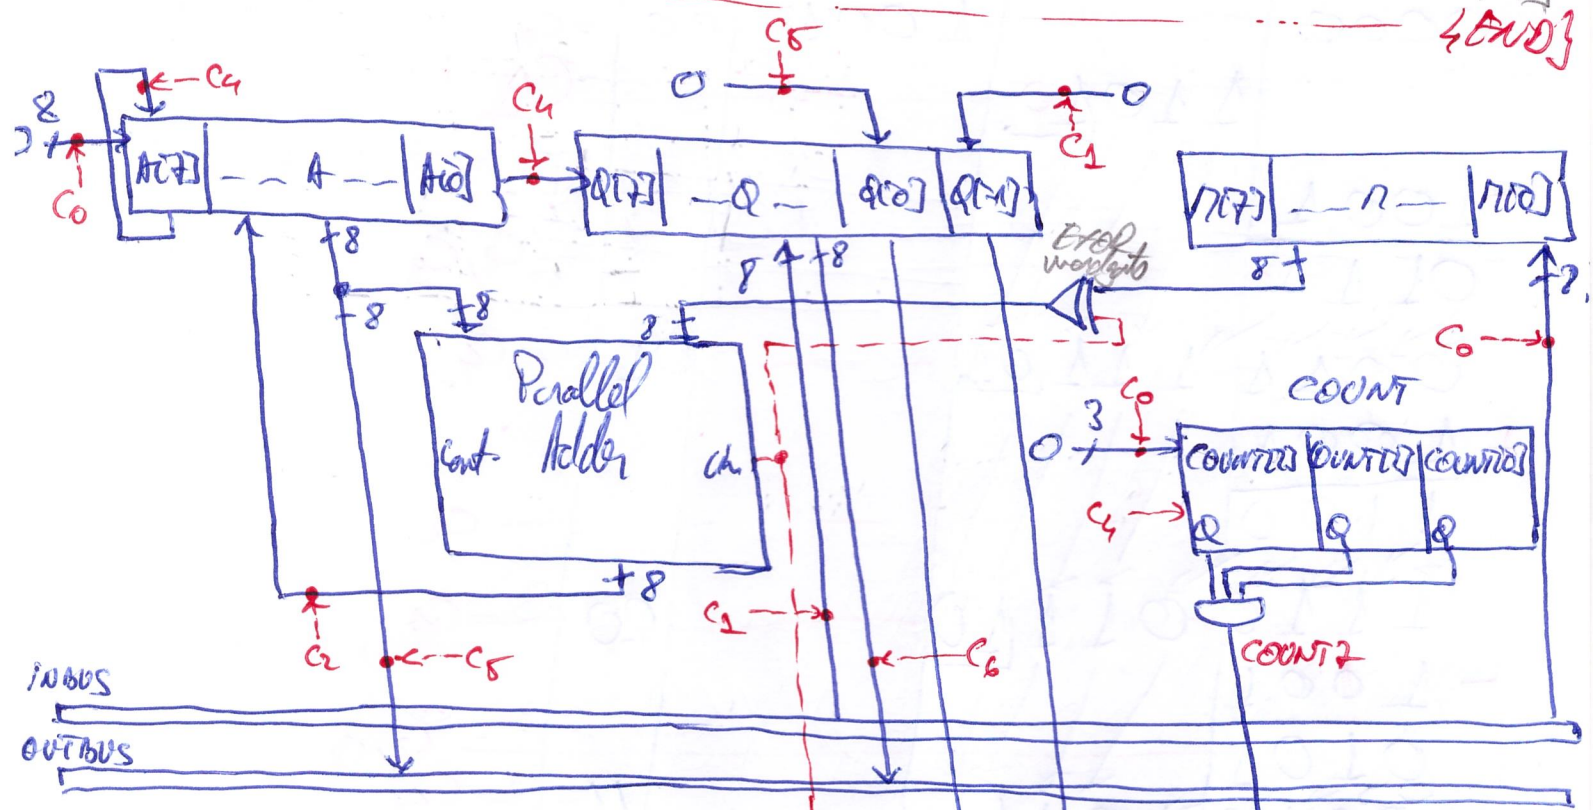 {END}
C5
0
0
C1
C4
C4
8
C0
A[7] _ _ A _ _ A[0]
Q[7] _ Q _ Q[0] Q[-1]
M[7] _ _ M _ _ M[0]
8
8
8
8
8
8
8
8
EXOR
C0
Parallel
Adder
Cout
Cin
COUNT
C0
3
0
COUNT[2] COUNT[1] COUNT[0]
C4
Q Q Q
8
C1
C2
C5
C6
COUNT7
INBUS
OUTBUS